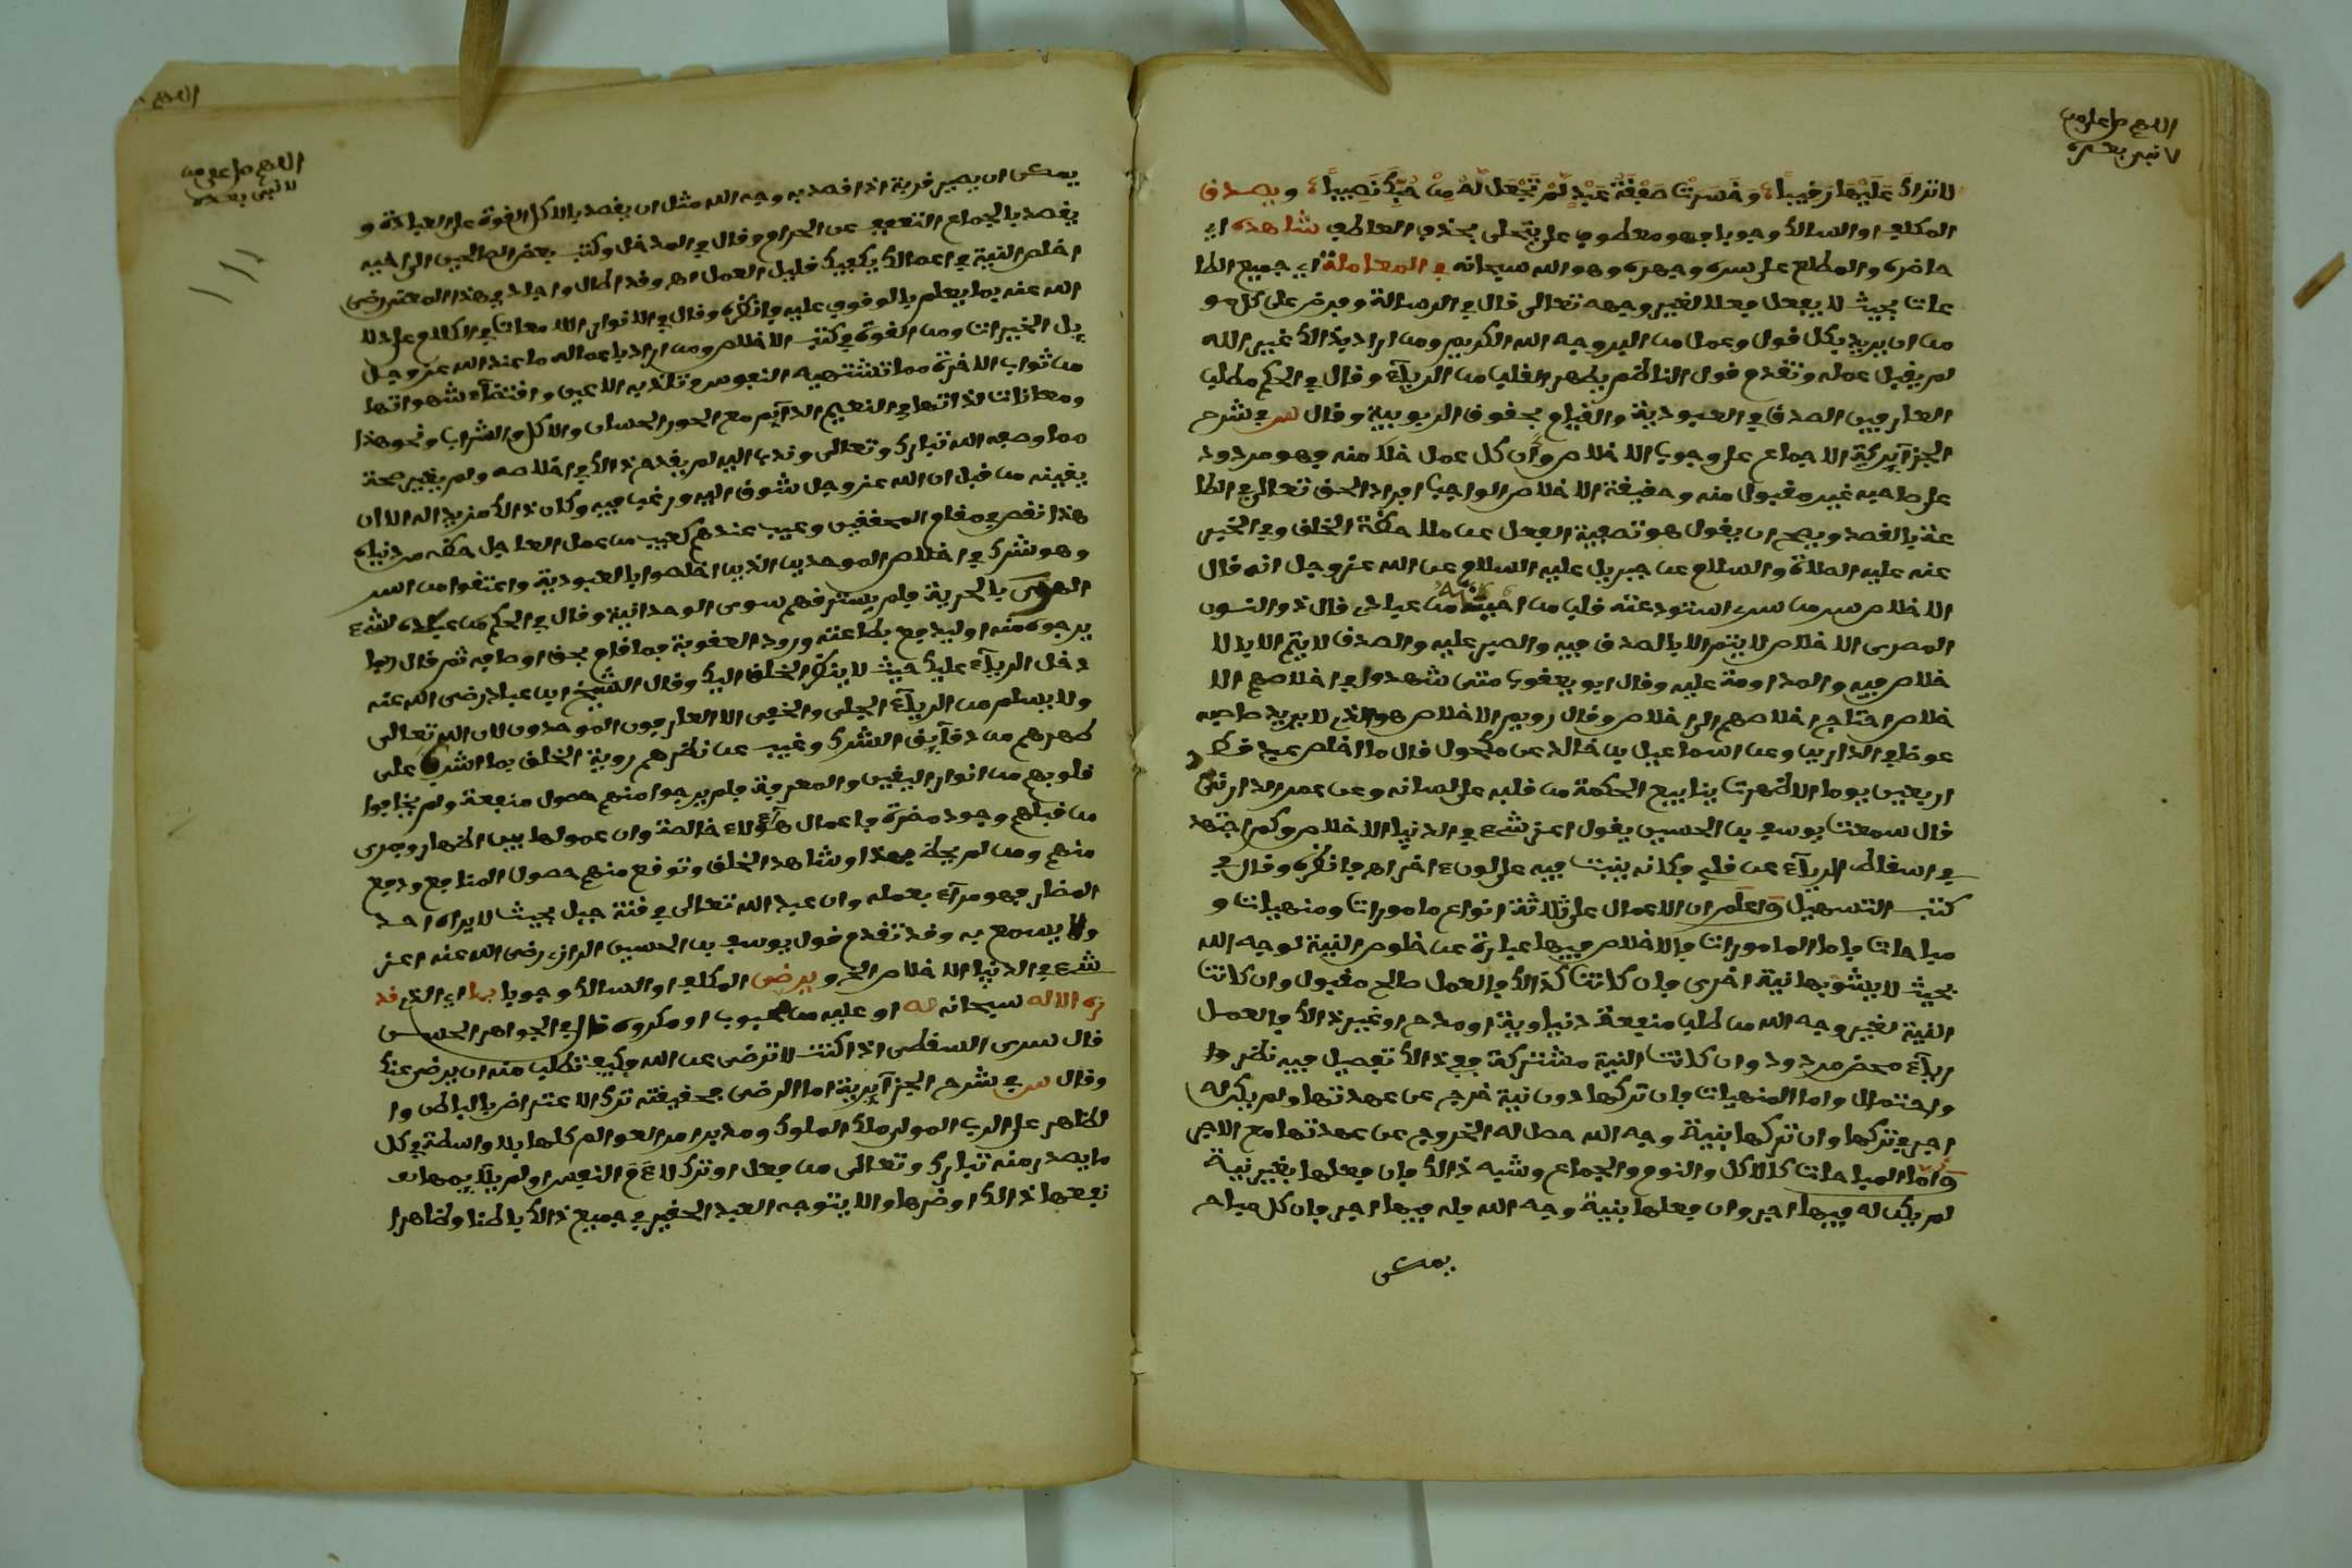 اللهم صل على من
لا نبي بعده
لا تراك عَلَيْهَا رَقِيباً، وَخَسِرَتْ صَفْقَةُ عَبْدٍ لَمْ تَجْعَل لَّهُ مِنْ حُبِّكَ نَصِيباً، ويصدق
المكلف او السالك وجوبا فهو معطوف على يتحلى بحذف العاطف شاهده اي
حاضره والمطلع على سره وجهره وهو الله سبحانه في المعاملة اي جميع الطا
عات بحيث لا يفعل فعلا لغير وجهه تعالى قال في الرسالة وفرض على كل مو
من ان يريد بكل قول وعمل من البر وجه الله الكريم ومن اراد بذالك غير الله
لم يقبل عمله وتقدم قول الناظم يطهر القلب من الرياء وقال في الحكم مطلب
العارفين الصدق في العبودية والقيام بحقوق الربوبية وقال س في شرح
الجزائرية الاجماع على وجوب الاخلاص وأن كل عمل خلا منه فهو مردود
على صاحبه غير مقبول منه وحقيقة الاخلاص الواجب افراد الحق تعالى في الطا
عة بالقصد ويصح ان يقول هو تصفية الفعل عن ملاحظة الخلق وفي الخبر
عنه عليه الصلاة والسلام عن جبريل عليه السلام عن الله عز وجل انه قال
الاخلاص سر من سري استودعته قلب من احببته من عبادي قال ذو النون
المصرى الاخلاص لا يتم الا بالصدق فيه والصبر عليه والصدق لا يتم الا بالا
خلاص فيه والمداومة عليه وقال ابو يعقوب متى شهدوا في اخلاصهم الا
خلاص احتاج اخلاصهم الى اخلاص وقال رويم الاخلاص هو الذي لا يريد صاحبه
عوضا في الدارين وعن اسماعيل بن خالد عن مكحول قال ما اخلص عبد قط
اربعين يوما الا ظهرت ينابيع الحكمة من قلبه على لسانه وعن عمر الدارني
قال سمعت يوسف بن الحسين يقول اعز شيء في الدنيا الاخلاص وكم اجتهد
في اسقاط الرياء عن قلبي فكانه ينبت فيه على لون اخر اه فانظره وقال في
كتب التسهيل واعلم ان الاعمال على ثلاثة انواع مامورات ومنهيات و
مباحات فاما المامورات فالاخلاص فيها عبارة عن خلوص النية لوجه الله
بحيث لا يشوبها نية اخرى فان كانت كذالك فالعمل صالح مقبول وان كانت
النية لغير وجه الله من طلب منفعة دنياوية او مدح او غير ذالك فالعمل
رياء محض مردود وان كانت النية مشتركة ففي ذالك تفصيل فيه نظر وا
واحتمال واما المنهيات فان تركها دون نية خرج عن عهدتها ولم يكن له
اجر في تركها وان تركها بنية وجه الله حصل له الخروج عن عهدتها مع الاجر
وأما المباحات كالاكل والنوم والجماع وشبه ذالك فان فعلها بغير نية
لم يكن له فيها اجر وان فعلها بنية وجه الله فله فيها اجر فان كل مباح
يمكن
اللهم صل على من
لا نبي بعده
يمكن ان يصير قربة اذا قصد به وجه الله مثل ان يقصد بالاكل القوة على العبادة و
يقصد بالجماع التعفف عن الحرام وقال في المدخل وكتب بعض الصالحين الى اخيه
اخلص النية في اعمالك يكفيك قليل العمل اه وقد اطال واجاد في هذا المعنى رضي
الله عنه بما يعلم بالوقوف عليه فانظره وقال في الانوار اللامعات في الكلام على دلا
يل الخيرات ومن القوة في كتب الاخلاص ومن اراد باعماله ما عند الله عز وجل
من ثواب الاخرة مما تشتهيه النفوس وتلذ به الاعين واقتضاء شهواتها
ومعاناة لذاتها في النعيم الدائم مع الحور الحسان والاكل والشراب ونحو هذا
مما وصفه الله تبارك وتعالى وندب اليه لم يقدح ذالك في اخلاصه ولم يغير صحة
يقينه من قبل ان الله عز وجل شوق اليه ورغب فيه وكان ذالك مزيد له الا ان
هذا نقص في مقام المحققين وعيب عندهم كعيب من عمل العاجل حظه من دنياه
وهو شرك في اخلاص الموحدين الذين اخلصوا بالعبودية واعتقوا من اسر
الهوى بالحرية فلم يسترقهم سوى الوحدانية وقال في الحكم من عبده لشيء
يرجوه منه او ليدفع بطاعته ورود العقوبة فما قام بحق اوصافه ثم قال ربما
دخل الرياء عليك حيث لا ينظر الخلق اليك وقال الشيخ ابن عباد رضي الله عنه
ولا يسلم من الرياء الجلي والخفي الا العارفون الموحدون لان الله تعالى
طهرهم من دقايق الشرك وغيب عن نظرهم روية الخلق بما اشرق على
قلوبهم من انوار اليقين والمعرفة فلم يرجوا منهم حصول منفعة ولم يخافوا
من قبلهم وجود مضرة فاعمال هؤلاء خالصة وان عملوها بين اظهار ومرى
منهم ومن لم يحظ بهذا وشاهد الخلق وتوقع منهم حصول المنافع ودفع
المضار فهو مراء بعمله وان عبد الله تعالى في قنة جبل بحيث لا يراه احد
ولا يسمع به وقد تقدم قول يوسف بن الحسين الرازي رضي الله عنه اعز
شيء في الدنيا الاخلاص الخ ويرضى المكلف او السالك وجوبا بما اي الذي قد
ره الاله سبحانه له او عليه من محبوب او مكروه قال في الجواهر الحسان
قال سرى السقطي اذا كنت لا ترضى عن الله فكيف تطلب منه ان يرضى عنك
وقال س في شرح الجزائرية اما الرضى فحقيقته ترك الاعتراض بالباطن وا
لظاهر على الرب المولى ملك الملوك ومدبر امر العوالم كلها بلا واسطة في كل
ما يصدر منه تبارك وتعالى من فعل او ترك لاءم النفس او لم يلايمها
نفعها ذالك او ضرها والا يتوجه العبد الحقير في جميع ذالك باطنا وظاهرا